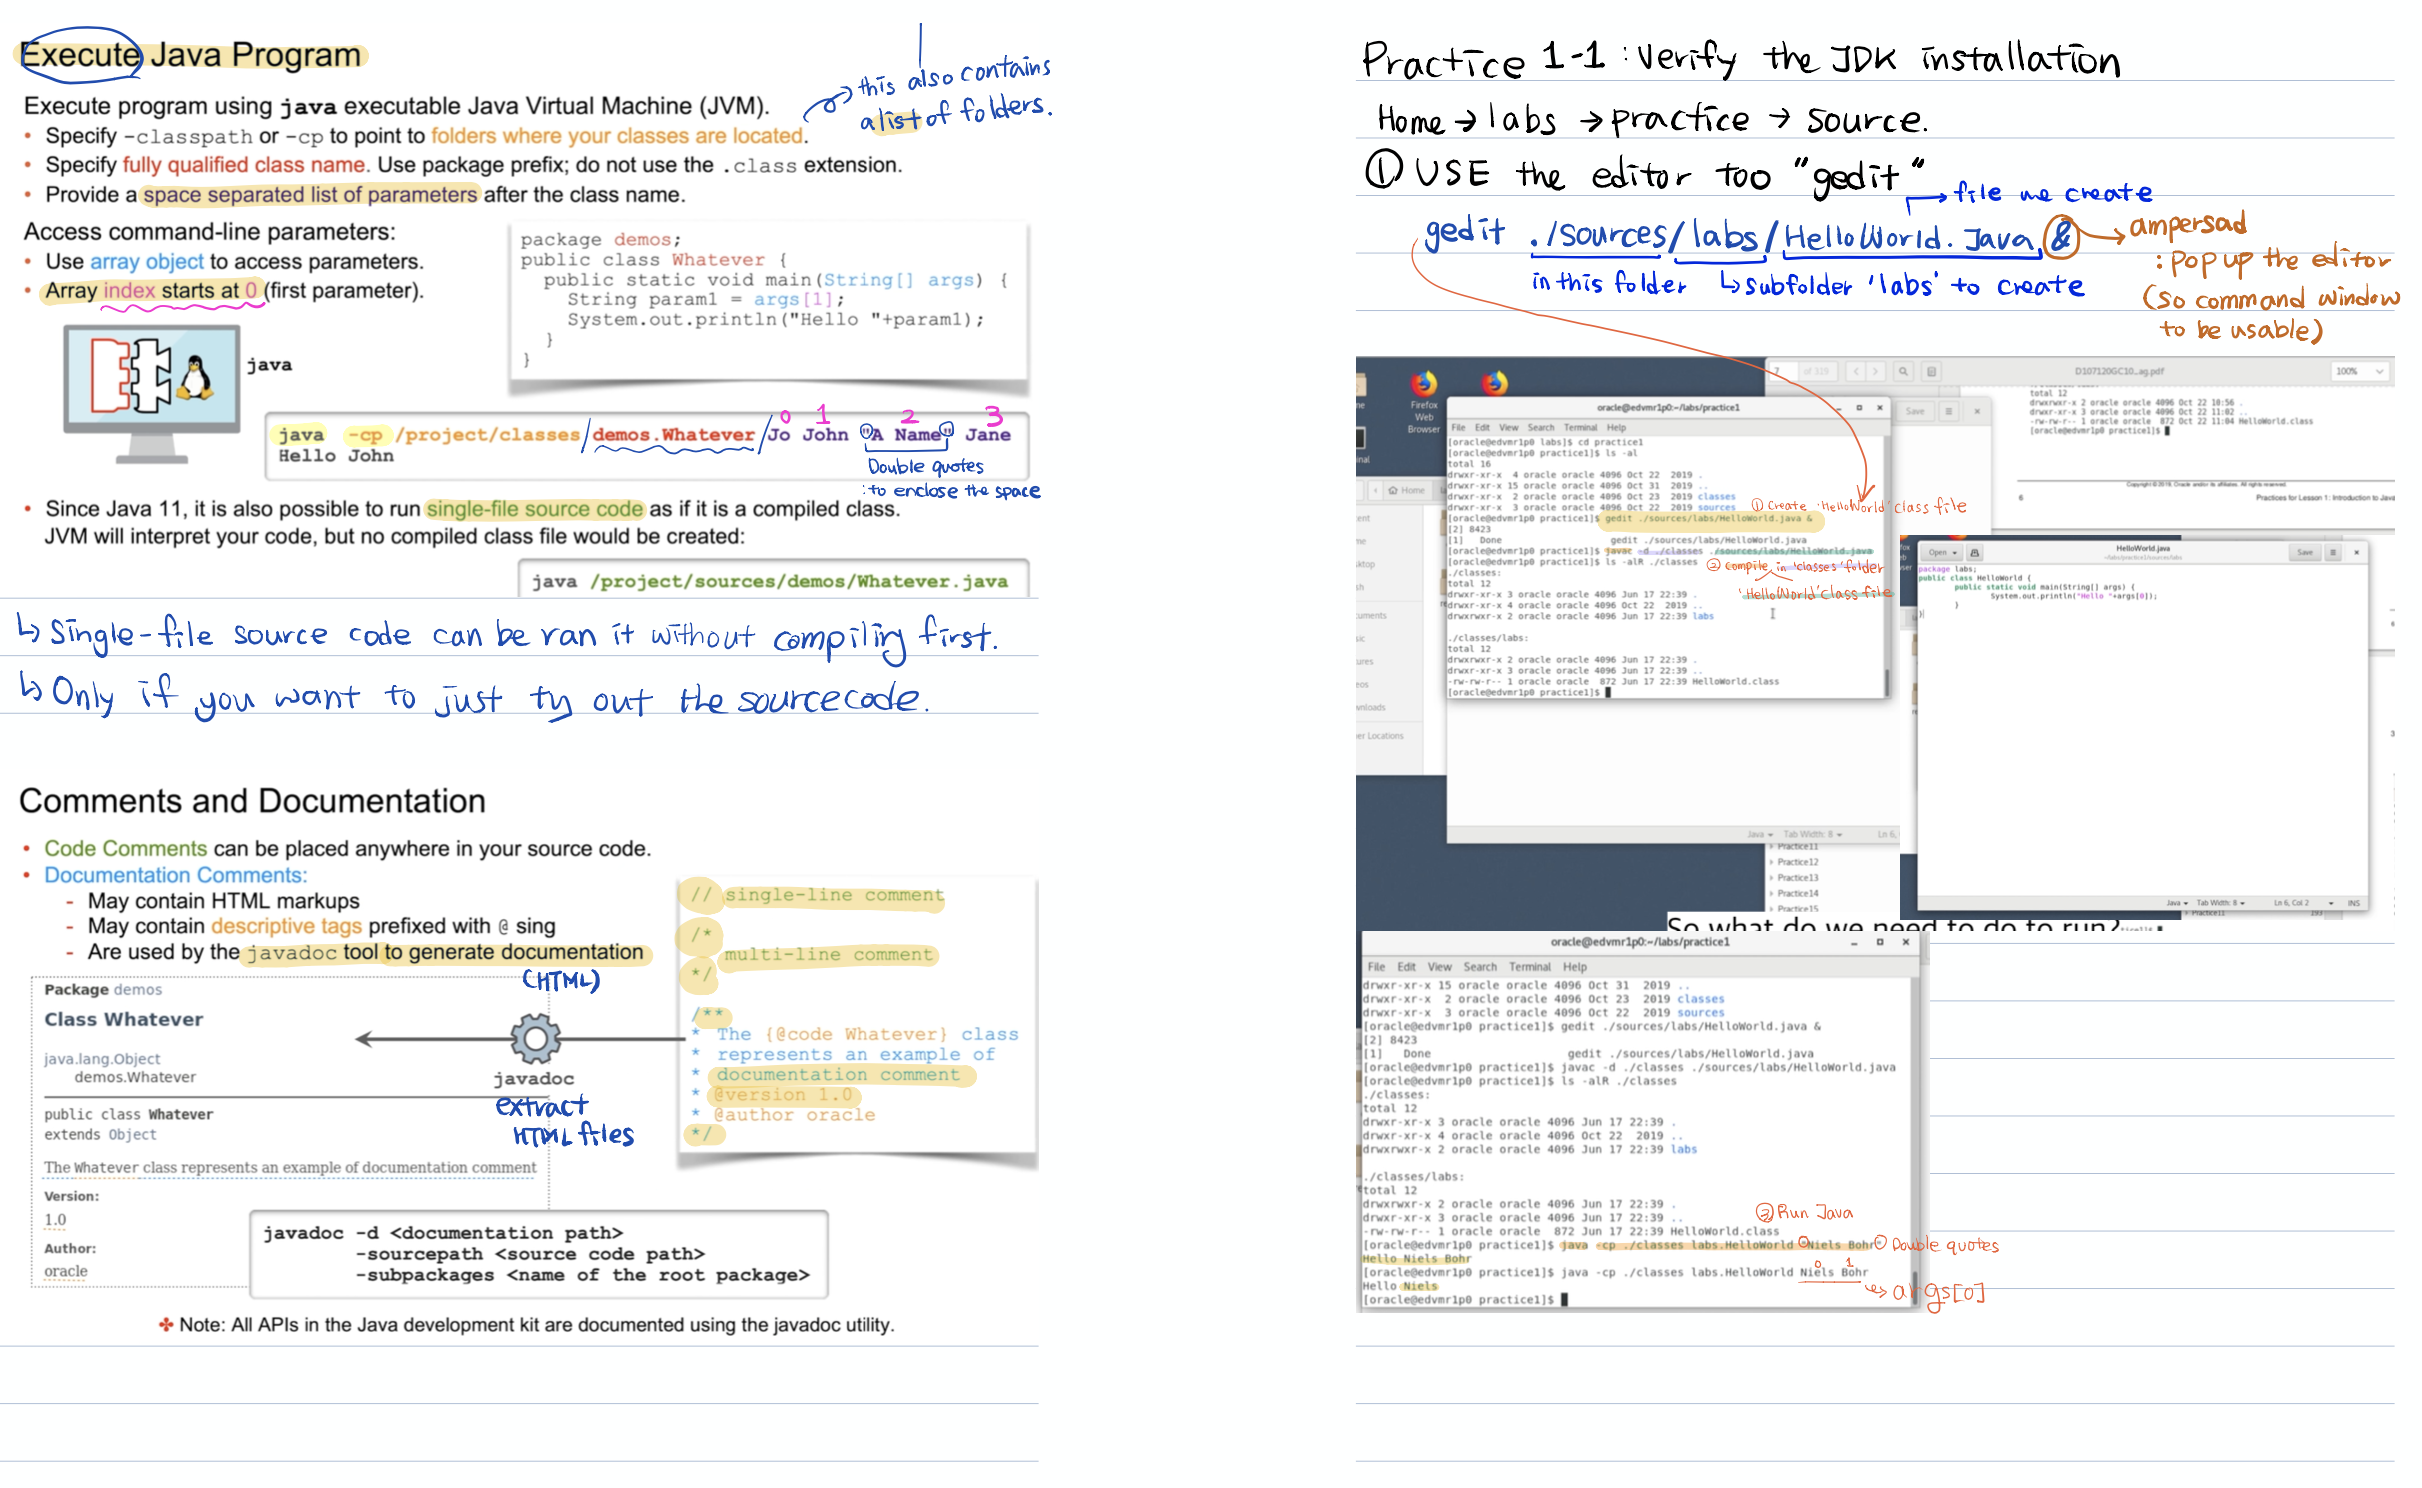 Execute Java Program
this also contains
a list of folders.
Execute program using java executable Java Virtual Machine (JVM).
• Specify -classpath or -cp to point to folders where your classes are located.
• Specify fully qualified class name. Use package prefix; do not use the .class extension.
• Provide a space separated list of parameters after the class name.
Access command-line parameters:
• Use array object to access parameters.
• Array index starts at 0 (first parameter).
package demos;
public class Whatever {
public static void main(String[] args) {
String param1 = args[1];
System.out.println("Hello "+param1);
}
}
java
0 1 2 3
java -cp /project/classes/demos.Whatever/Jo John "A Name" Jane
Hello John
Double quotes
: to enclose the space
• Since Java 11, it is also possible to run single-file source code as if it is a compiled class.
JVM will interpret your code, but no compiled class file would be created:
java /project/sources/demos/Whatever.java
↳ Single-file source code can be ran it without compiling first.
↳ Only if you want to just try out the sourcecode.
Comments and Documentation
• Code Comments can be placed anywhere in your source code.
• Documentation Comments:
- May contain HTML markups
- May contain descriptive tags prefixed with @ sing
- Are used by the javadoc tool to generate documentation
(HTML)
// single-line comment
/*
multi-line comment
*/
/**
* The {@code Whatever} class
* represents an example of
* documentation comment
* @version 1.0
* @author oracle
*/
Package demos
Class Whatever
java.lang.Object
demos.Whatever
public class Whatever
extends Object
The Whatever class represents an example of documentation comment
Version:
1.0
Author:
oracle
javadoc
extract
HTML files
javadoc -d <documentation path>
-sourcepath <source code path>
-subpackages <name of the root package>
✤ Note: All APIs in the Java development kit are documented using the javadoc utility.
Practice 1-1 : Verify the JDK installation
Home → labs → practice → source.
① USE the editor too "gedit"
→ file we create
gedit ./sources/labs/HelloWorld.Java &
→ ampersad
: pop up the editor
(so command window
to be usable)
in this folder ↳ subfolder 'labs' to create
Firefox
Web
Browser
7 of 319
D107120GC10...ag.pdf
100%
total 12
drwxrwxr-x 2 oracle oracle 4096 Oct 22 10:56 .
drwxr-xr-x 3 oracle oracle 4096 Oct 22 11:02 ..
-rw-rw-r-- 1 oracle oracle 872 Oct 22 11:04 HelloWorld.class
[oracle@edvmr1p0 practice1]$
Save
Copyright © 2019, Oracle and/or its affiliates. All rights reserved.
6
Practices for Lesson 1: Introduction to Java
Home
oracle@edvmr1p0:~/labs/practice1
File Edit View Search Terminal Help
[oracle@edvmr1p0 labs]$ cd practice1
[oracle@edvmr1p0 practice1]$ ls -al
total 16
drwxr-xr-x 4 oracle oracle 4096 Oct 22 2019 .
drwxr-xr-x 15 oracle oracle 4096 Oct 31 2019 ..
drwxr-xr-x 2 oracle oracle 4096 Oct 23 2019 classes
drwxr-xr-x 3 oracle oracle 4096 Oct 22 2019 sources
① Create 'HelloWorld' class file
[oracle@edvmr1p0 practice1]$ gedit ./sources/labs/HelloWorld.java &
[2] 8423
[1] Done gedit ./sources/labs/HelloWorld.java
[oracle@edvmr1p0 practice1]$ javac -d ./classes ./sources/labs/HelloWorld.java
[oracle@edvmr1p0 practice1]$ ls -alR ./classes
② Compile in 'classes' folder
'HelloWorld' class file
./classes:
total 12
drwxrwxr-x 3 oracle oracle 4096 Jun 17 22:39 .
drwxr-xr-x 4 oracle oracle 4096 Oct 22 2019 ..
drwxrwxr-x 2 oracle oracle 4096 Jun 17 22:39 labs
./classes/labs:
total 12
drwxrwxr-x 2 oracle oracle 4096 Jun 17 22:39 .
drwxrwxr-x 3 oracle oracle 4096 Jun 17 22:39 ..
-rw-rw-r-- 1 oracle oracle 872 Jun 17 22:39 HelloWorld.class
[oracle@edvmr1p0 practice1]$
Java Tab Width: 8 Ln 6,
Practice11
Practice12
Practice13
Practice14
Practice15
Open
HelloWorld.java
~/labs/practice1/sources/labs
Save
package labs;
public class HelloWorld {
public static void main(String[] args) {
System.out.println("Hello "+args[0]);
}
}
Java Tab Width: 8 Ln 6, Col 2 INS
So what do we need to do to run?
oracle@edvmr1p0:~/labs/practice1
File Edit View Search Terminal Help
drwxr-xr-x 15 oracle oracle 4096 Oct 31 2019 ..
drwxr-xr-x 2 oracle oracle 4096 Oct 23 2019 classes
drwxr-xr-x 3 oracle oracle 4096 Oct 22 2019 sources
[oracle@edvmr1p0 practice1]$ gedit ./sources/labs/HelloWorld.java &
[2] 8423
[1] Done gedit ./sources/labs/HelloWorld.java
[oracle@edvmr1p0 practice1]$ javac -d ./classes ./sources/labs/HelloWorld.java
[oracle@edvmr1p0 practice1]$ ls -alR ./classes
./classes:
total 12
drwxrwxr-x 3 oracle oracle 4096 Jun 17 22:39 .
drwxr-xr-x 4 oracle oracle 4096 Oct 22 2019 ..
drwxrwxr-x 2 oracle oracle 4096 Jun 17 22:39 labs
./classes/labs:
total 12
drwxrwxr-x 2 oracle oracle 4096 Jun 17 22:39 .
drwxrwxr-x 3 oracle oracle 4096 Jun 17 22:39 ..
③ Run Java
-rw-rw-r-- 1 oracle oracle 872 Jun 17 22:39 HelloWorld.class
[oracle@edvmr1p0 practice1]$ java -cp ./classes labs.HelloWorld "Niels Bohr"
Double quotes
Hello Niels Bohr
0 1
[oracle@edvmr1p0 practice1]$ java -cp ./classes labs.HelloWorld Niels Bohr
Hello Niels
→ args[0]
[oracle@edvmr1p0 practice1]$